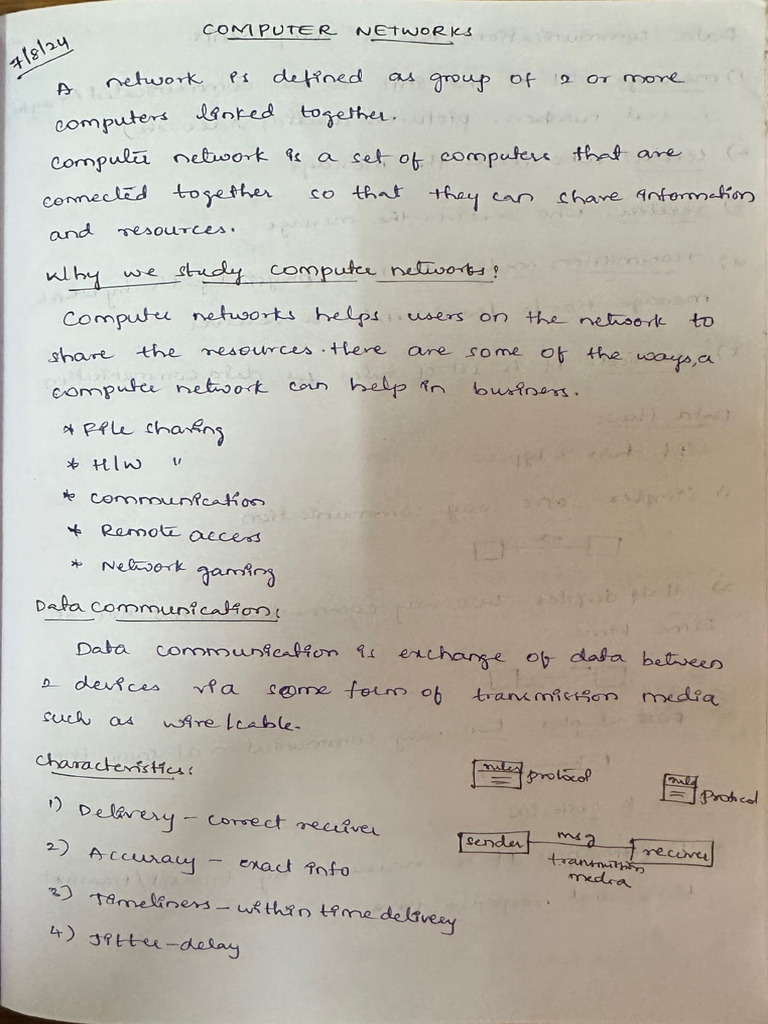 7/8/24
COMPUTER NETWORKS
A network is defined as group of 2 or more
computers linked together.
computer network is a set of computers that are
connected together so that they can share information
and resources.
Why we study computer networks?
Computer networks helps users on the network to
share the resources. there are some of the ways, a
computer network can help in business.
* File sharing
* H/W "
* communication
* Remote access
* Network gaming
Data communication:
Data communication is exchange of data between
2 devices via some form of transmission media
such as wire/cable.
characteristics:
1) Delivery - correct receiver
2) Accuracy - exact info
3) Timeliness - within time delivery
4) Jitter - delay
rules
protocol
rule
protocol
sender
msg
receiver
transmission
media